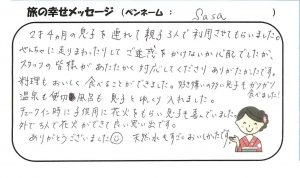 旅の幸せメッセージ (ペンネーム : Sasa )
2才4ヶ月の息子を連れて親子3人で利用させてもらいました。
やんちゃに走りまわったりしてご迷惑をかけないか心配でしたが、
スタッフの皆様があたたかく対応してくださりありがたかったです。
料理もおいしく食べることができました。好き嫌いの多い息子もガツガツ食べました!
温泉も貸切風呂も息子とゆっくり入れました。
チェックイン時に子供用に花火をもらい息子も喜んでいました。
外で3人で花火ができて良い思い出です。
ありがとうございました 天然水もすごくおいしかったです。